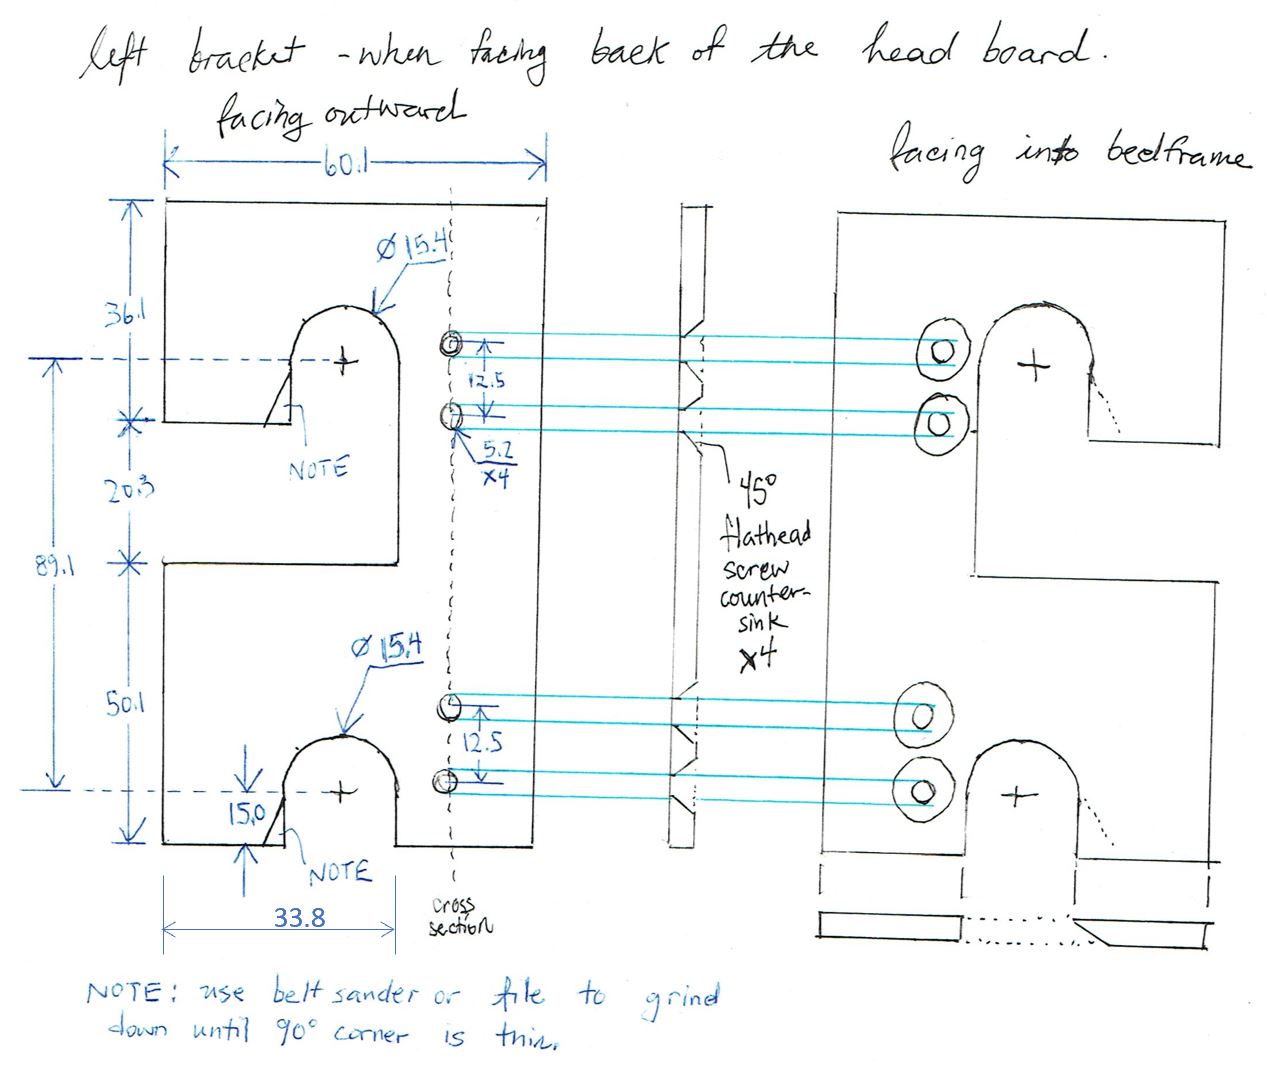 left bracket - when facing back of the head board.
facing outward
facing into bedframe
60.1
Ø 15.4
36.1
12.5
NOTE
5.2
x4
20.3
45°
flathead
screw
counter-
sink
x4
89.1
Ø 15.4
50.1
12.5
15.0
NOTE
33.8
cross
section
NOTE: use belt sander or file to grind
down until 90° corner is thin.